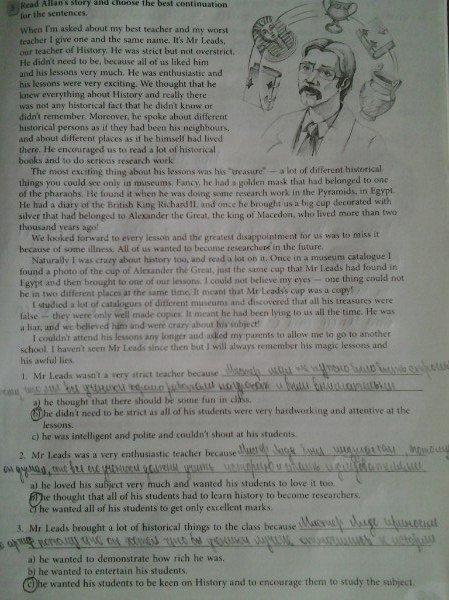 3 Read Allan's story and choose the best continuation
for the sentences.
When I'm asked about my best teacher and my worst
teacher I give one and the same name. It's Mr Leads,
our teacher of History. He was strict but not overstrict.
He didn't need to be, because all of us liked him
and his lessons very much. He was enthusiastic and
his lessons were very exciting. We thought that he
knew everything about History and really there
was not any historical fact that he didn't know or
didn't remember. Moreover, he spoke about different
historical persons as if they had been his neighbours,
and about different places as if he himself had lived
there. He encouraged us to read a lot of historical
books and to do serious research work.
The most exciting thing about his lessons was his "treasure" — a lot of different historical
things you could see only in museums. Fancy, he had a golden mask that had belonged to one
of the pharaohs. He found it when he was doing some research work in the Pyramids, in Egypt.
He had a diary of the British King Richard II, and once he brought us a big cup decorated with
silver that had belonged to Alexander the Great, the king of Macedon, who lived more than two
thousand years ago!
We looked forward to every lesson and the greatest disappointment for us was to miss it
because of some illness. All of us wanted to become researchers in the future.
Naturally I was crazy about history too, and read a lot on it. Once in a museum catalogue I
found a photo of the cup of Alexander the Great, just the same cup that Mr Leads had found in
Egypt and then brought to one of our lessons. I could not believe my eyes — one thing could not
be in two different places at the same time. It meant that Mr Leads's cup was a copy!
I studied a lot of catalogues of different museums and discovered that all his treasures were
false — they were only well made copies. It meant he had been lying to us all the time. He was
a liar, and we believed him and were crazy about his subject!
I couldn't attend his lessons any longer and asked my parents to allow me to go to another
school. I haven't seen Mr Leads since then but I will always remember his magic lessons and
his awful lies.
1. Mr Leads wasn't a very strict teacher because Мистер
все ученики
a) he thought that there should be some fun in class.
b) he didn't need to be strict as all of his students were very hardworking and attentive at the
lessons.
c) he was intelligent and polite and couldn't shout at his students.
2. Mr Leads was a very enthusiastic teacher because
он думал, что все его ученики должны учить историю
a) he loved his subject very much and wanted his students to love it too.
b) he thought that all of his students had to learn history to become researchers.
c) he wanted all of his students to get only excellent marks.
3. Mr Leads brought a lot of historical things to the class because Мистер Лидс приносил
потому что он хотел что бы ученики к истории
a) he wanted to demonstrate how rich he was.
b) he wanted to entertain his students.
c) he wanted his students to be keen on History and to encourage them to study the subject.